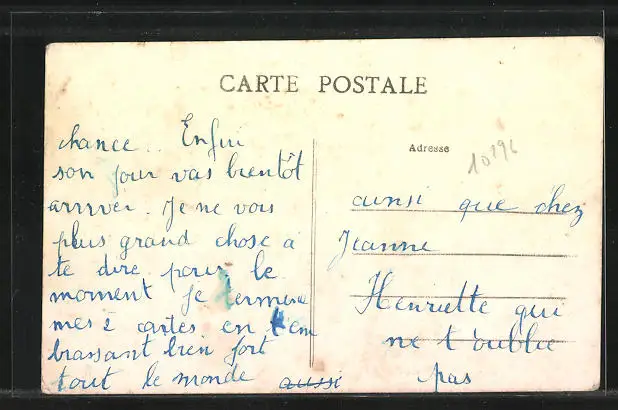 CARTE POSTALE
chance.. Enfin
son jour vas bientôt
arrrver. Je ne vois
plus grand chose a
te dire pour le
moment je termine
mes 2 cartes en t'em
brassant bien fort
tout le monde aussi
Adresse
10196
ainsi que chez
Jeanne
Henriette qui
ne t'oublie
pas